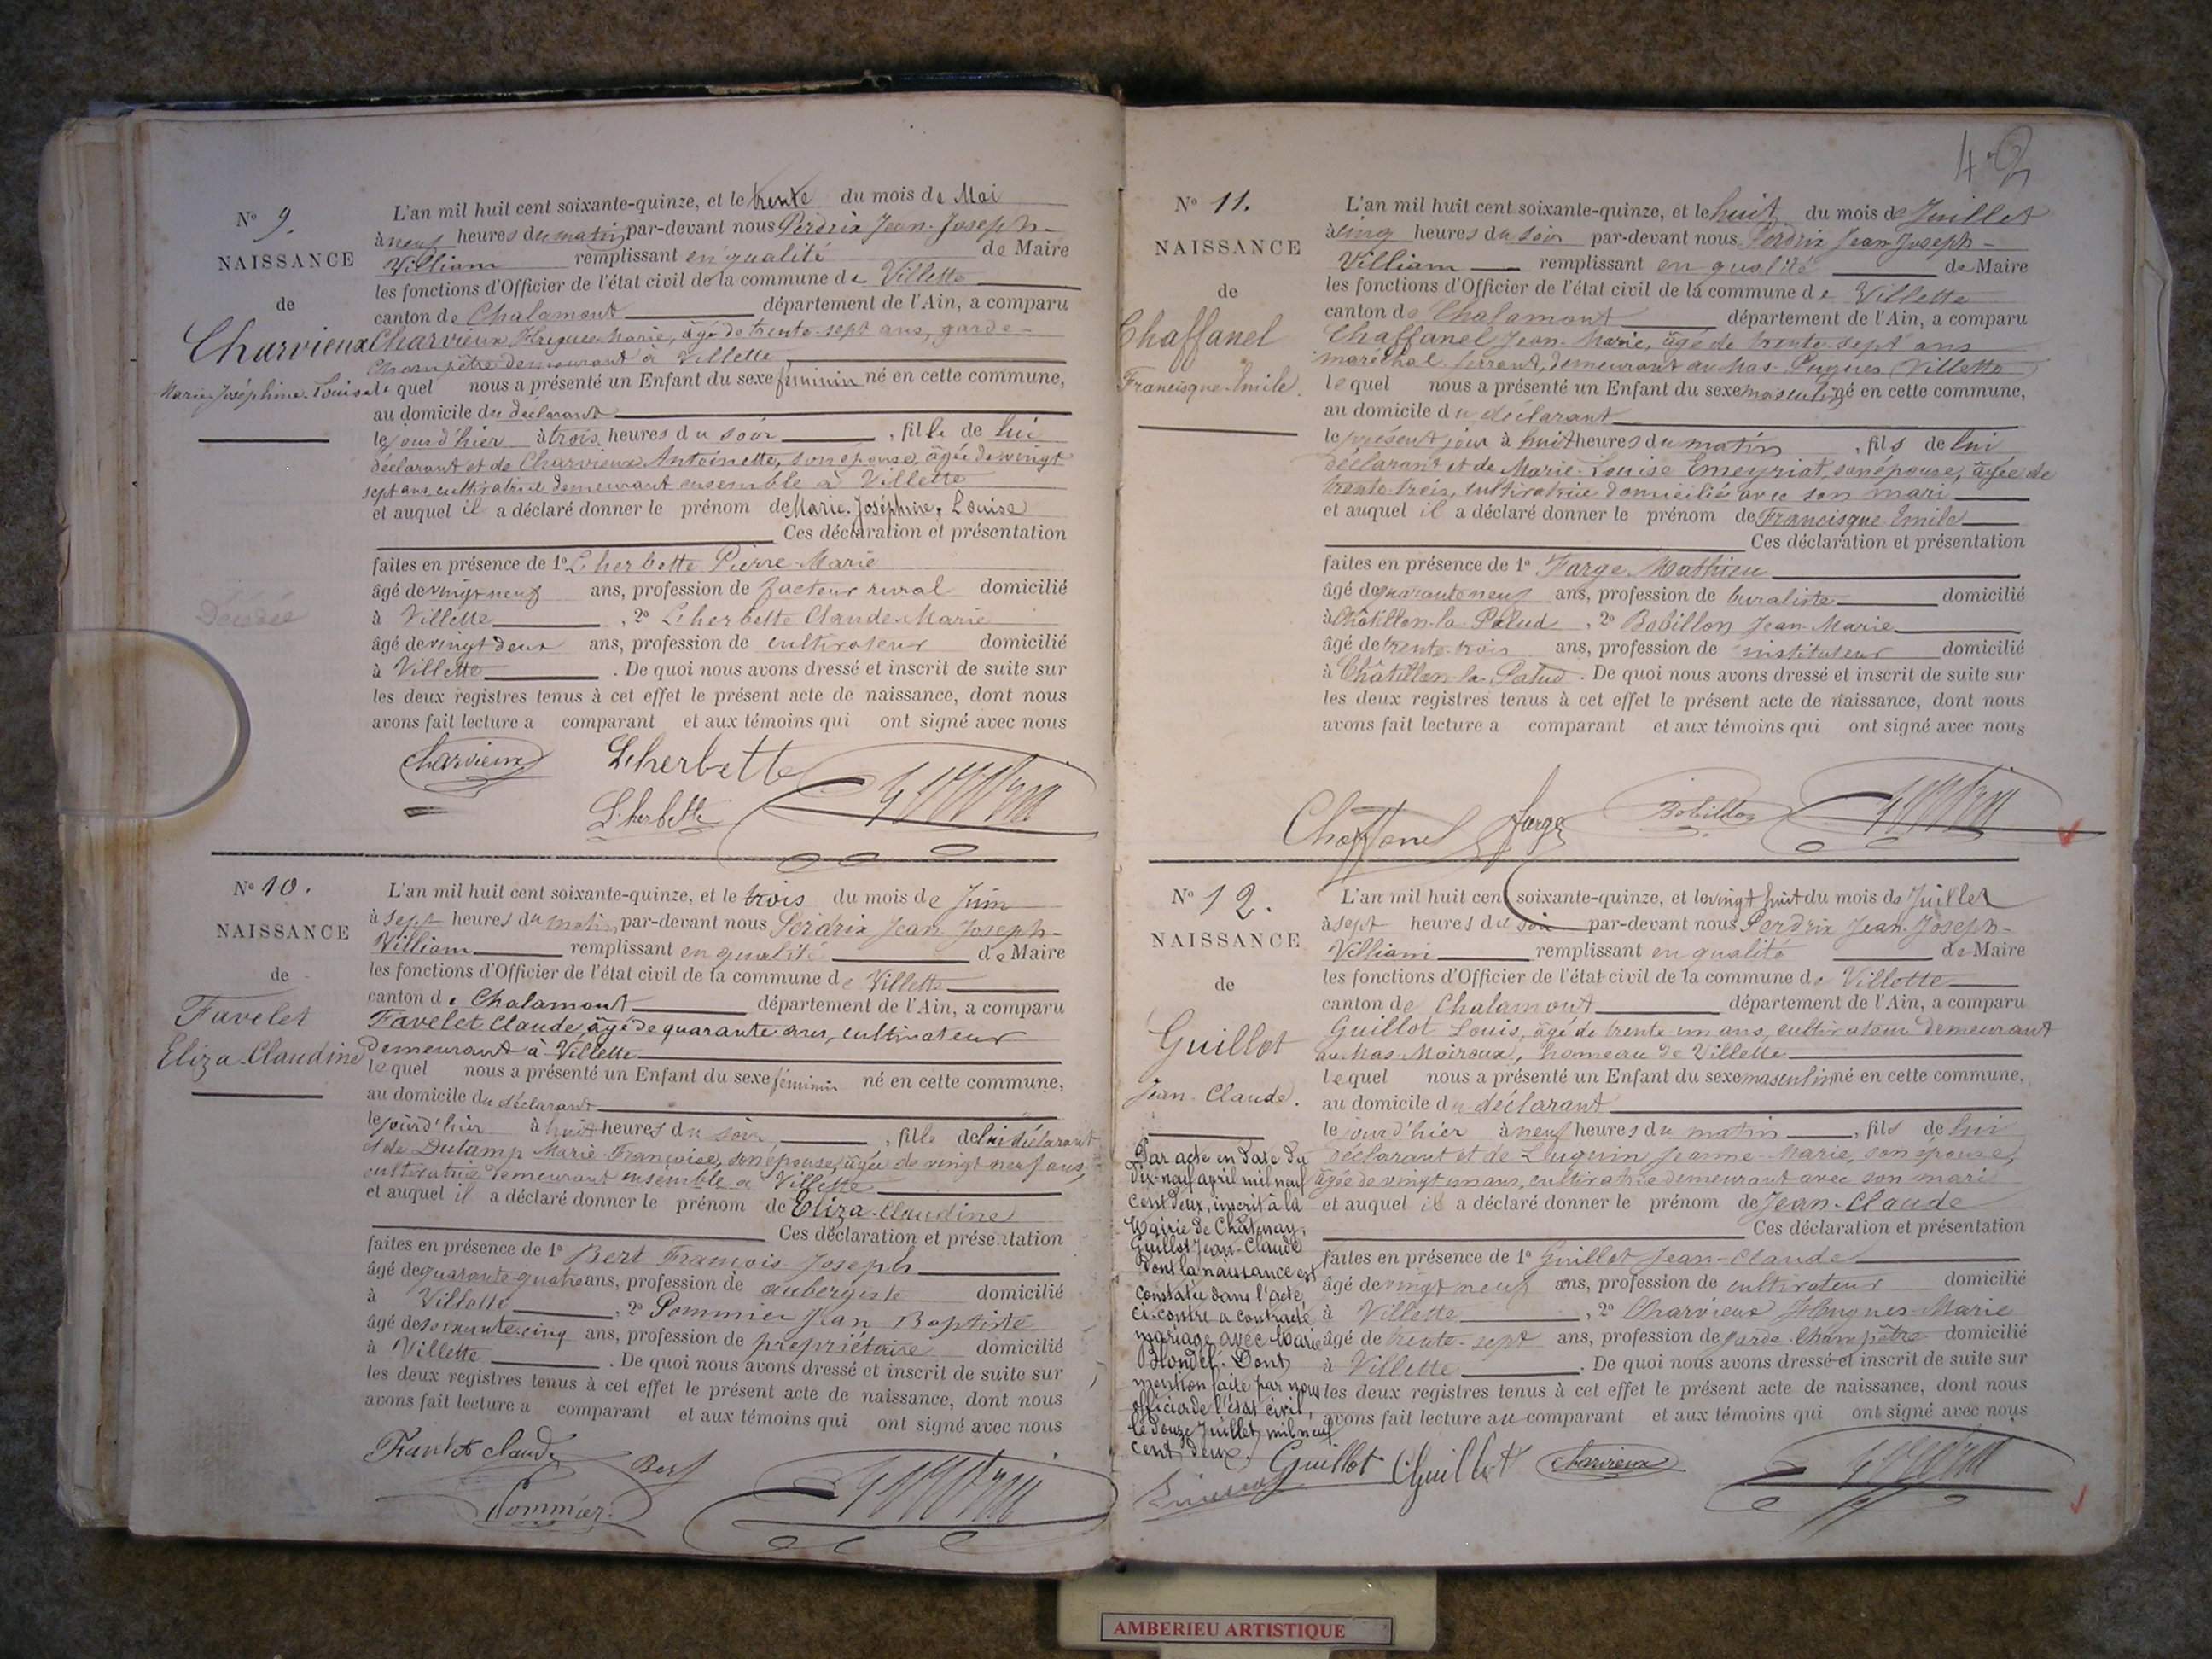 N° 9.
NAISSANCE
de
Charvieux
Marie-Joséphine-Louise
L'an mil huit cent soixante-quinze, et le trente du mois de Mai
à neuf heures du matin par-devant nous Perdrix Jean-Joseph-
William remplissant en qualité de Maire
les fonctions d'Officier de l'état civil de la commune de Villette
canton de Chalamont département de l'Ain, a comparu
Charvieux Hugues Marie, âgé de trente-sept ans, garde-
champêtre demeurant à Villette
lequel nous a présenté un Enfant du sexe féminin né en cette commune,
au domicile du déclarant
le jourd'hier à trois heures du soir, fille de lui
déclarant et de Charvieux Antoinette, son épouse, âgée de vingt
sept ans cultivatrice demeurant ensemble à Villette
et auquel il a déclaré donner le prénom de Marie-Joséphine-Louise
Ces déclaration et présentation
faites en présence de 1° Lherbette Pierre-Marie
âgé de vingt neuf ans, profession de facteur rural domicilié
à Villette, 2° Lherbette Claude-Marie
âgé de vingt deux ans, profession de cultivateur domicilié
à Villette. De quoi nous avons dressé et inscrit de suite sur
les deux registres tenus à cet effet le présent acte de naissance, dont nous
avons fait lecture a comparant et aux témoins qui ont signé avec nous
Décédée
Charvieux Lherbette
Lherbette
N° 10.
NAISSANCE
de
Favelet
Eliza-Claudine
L'an mil huit cent soixante-quinze, et le trois du mois de Juin
à sept heures du matin, par-devant nous Perdrix Jean Joseph-
William remplissant en qualité de Maire
les fonctions d'Officier de l'état civil de la commune de Villette
canton de Chalamont département de l'Ain, a comparu
Favelet Claude âgé de quarante ans, cultivateur
demeurant à Villette
lequel nous a présenté un Enfant du sexe féminin né en cette commune,
au domicile du déclarant
le jourd'hier à huit heures du soir, fille de lui déclarant
et de Dutamp Marie Françoise, son épouse, âgée de vingt neuf ans,
cultivatrice demeurant ensemble à Villette
et auquel il a déclaré donner le prénom de Eliza-Claudine
Ces déclaration et présentation
faites en présence de 1° Bert François Joseph
âgé de quarante-quatre ans, profession de aubergiste domicilié
à Villette, 2° Pommier Jean Baptiste
âgé de soixante-cinq ans, profession de propriétaire domicilié
à Villette. De quoi nous avons dressé et inscrit de suite sur
les deux registres tenus à cet effet le présent acte de naissance, dont nous
avons fait lecture a comparant et aux témoins qui ont signé avec nous
Favelet claude Bert
Pommier
42
N° 11.
NAISSANCE
de
Chaffanel
Francisque-Emile.
L'an mil huit cent soixante-quinze, et le huit du mois de Juillet
à cinq heures du soir par-devant nous Perdrix Jean-Joseph-
William remplissant en qualité de Maire
les fonctions d'Officier de l'état civil de la commune de Villette
canton de Chalamont département de l'Ain, a comparu
Chaffanel Jean-Marie, âgé de trente-sept ans
maréchal ferrant, demeurant au Mas-Pugues (Villette)
lequel nous a présenté un Enfant du sexe masculin né en cette commune,
au domicile du déclarant
le présent jour à huit heures du matin, fils de lui
déclarant et de Marie-Louise Emeyriat, son épouse, âgée de
trente-trois, cultivatrice domiciliée avec son mari
et auquel il a déclaré donner le prénom de Francisque Emile
Ces déclaration et présentation
faites en présence de 1° Farge Mathieu
âgé de quarante neuf ans, profession de buraliste domicilié
à Châtillon-la-Palud, 2° Bobillon Jean-Marie
âgé de trente-trois ans, profession de instituteur domicilié
à Châtillon-la-Palud. De quoi nous avons dressé et inscrit de suite sur
les deux registres tenus à cet effet le présent acte de naissance, dont nous
avons fait lecture a comparant et aux témoins qui ont signé avec nous
Chaffanel Farge Bobillon
N° 12.
NAISSANCE
de
Guillot
Jean-Claude.
L'an mil huit cent soixante-quinze, et le vingt huit du mois de Juillet
à sept heures du soir par-devant nous Perdrix Jean-Joseph-
William remplissant en qualité de Maire
les fonctions d'Officier de l'état civil de la commune de Villette
canton de Chalamont département de l'Ain, a comparu
Guillot Louis, âgé de trente un ans, cultivateur demeurant
au Mas-Moiroux, hameau de Villette
lequel nous a présenté un Enfant du sexe masculin né en cette commune,
au domicile du déclarant
le jourd'hier à neuf heures du matin, fils de lui
déclarant et de Luguin Jeanne-Marie, son épouse,
âgée de vingt un ans, cultivatrice demeurant avec son mari
et auquel il a déclaré donner le prénom de Jean-Claude
Ces déclaration et présentation
faites en présence de 1° Guillot Jean-Claude
âgé de vingt neuf ans, profession de cultivateur domicilié
à Villette, 2° Charvieux Hugues-Marie
âgé de trente-sept ans, profession de garde-champêtre domicilié
à Villette. De quoi nous avons dressé et inscrit de suite sur
les deux registres tenus à cet effet le présent acte de naissance, dont nous
avons fait lecture au comparant et aux témoins qui ont signé avec nous
Par acte en date du
dix-neuf avril mil neuf
cent deux, inscrit à la
Mairie de Châtenay,
Guillot Jean-Claude
dont la naissance est
constatée dans l'acte
ci-contre a contracté
mariage avec Marie
Blondel. Dont
mention faite par nous
officier de l'état civil,
le douze Juillet mil neuf
cent deux.
Guillot Guillot Charvieux
AMBERIEU ARTISTIQUE